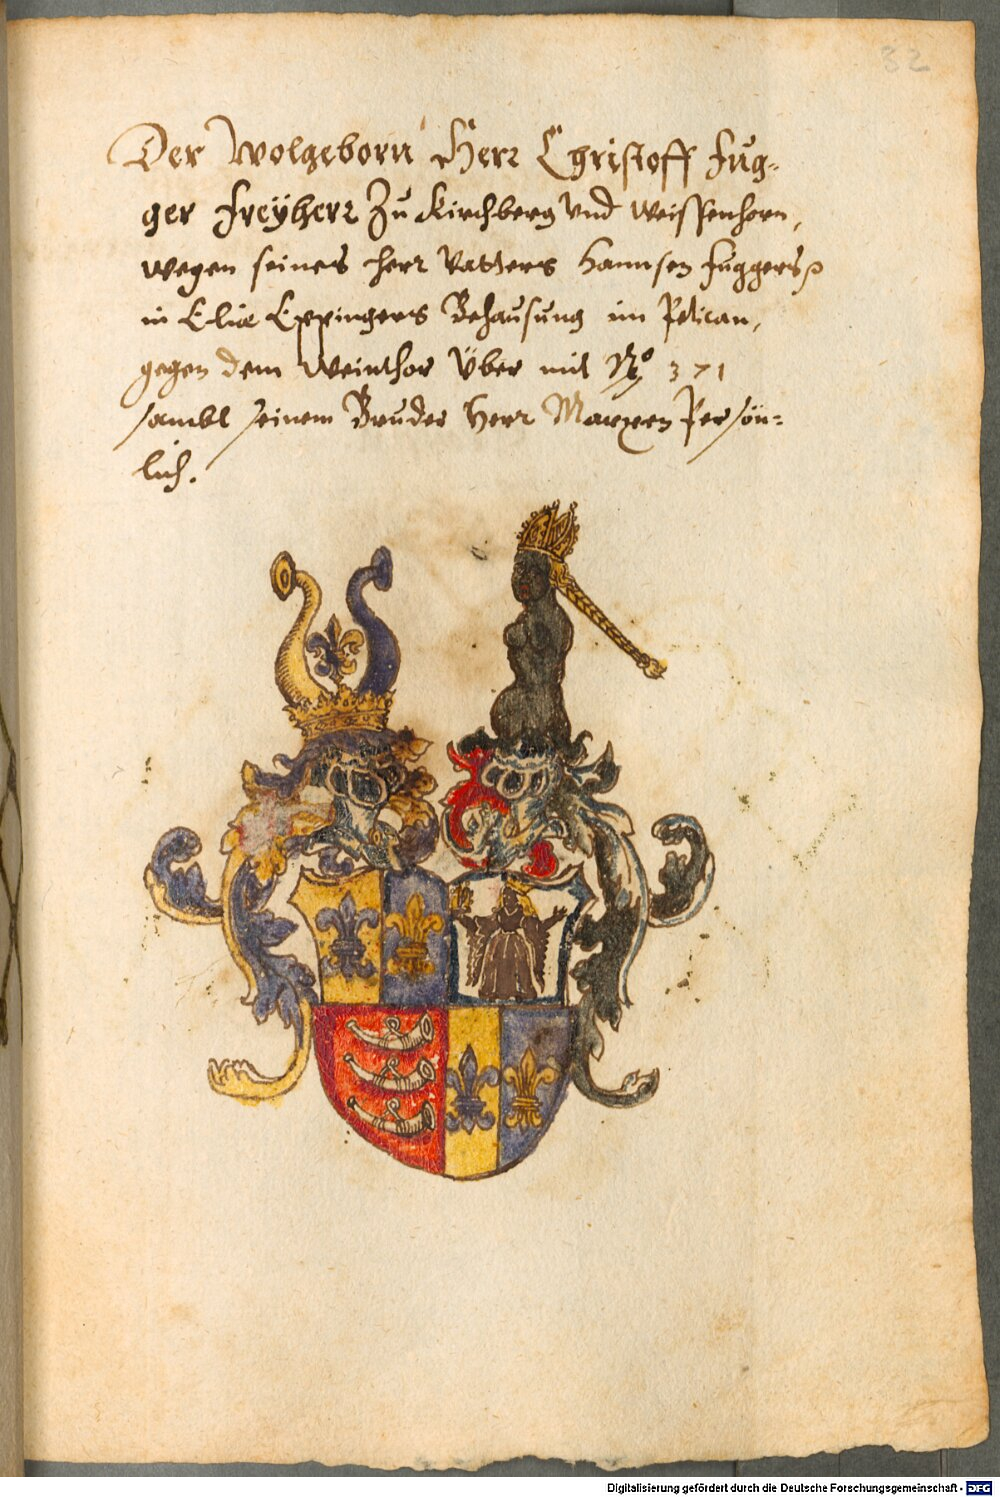 32
Der Wolgeborn Herr Christoff Fug-
ger Freÿherr Zu Kirchberg vnd Weissenhorn,
wegen seines herr Vatters Hannsen Fuggers
in Elia Eppingers Behausung im Pelican,
gegen dem Weinthor Über mit No 371
sambt seinem Bruder Herr Marxen Persön-
lich.
Digitalisierung gefördert durch die Deutsche Forschungsgemeinschaft - DFG